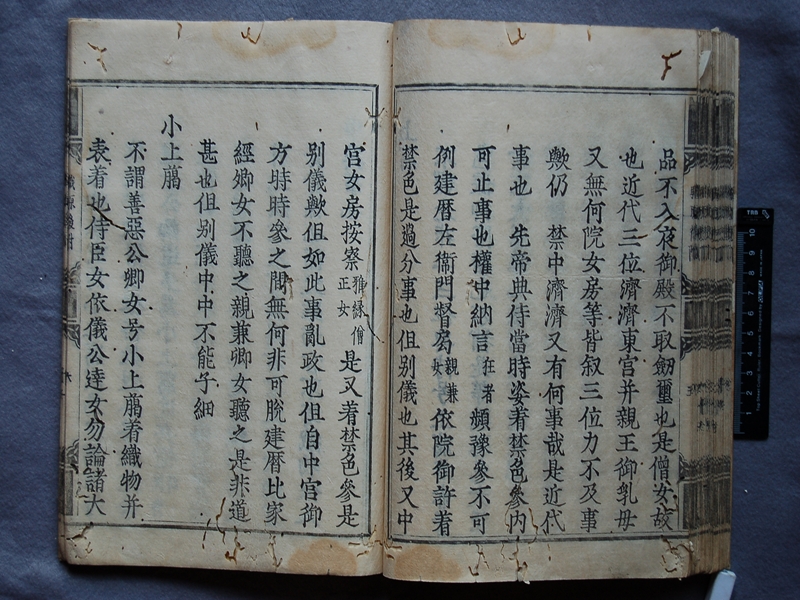 品不入夜御殿不取劔璽也是僧女故
也近代三位濟濟東宮并親王御乳母
又無何院女房等皆叙三位力不及事
歟仍 禁中濟濟又有何事哉是近代
事也 先帝典侍當時姿着禁色參内
可止事也權中納言在者頻豫參不可
例建暦左衞門督局親兼女依院御許着
禁色是過分事也但別儀也其後又中
宮女房按察雅縁僧正女是又着禁色參是
別儀歟但如此事亂政也但自中宮御
方時時參之間無何非可脱建暦比家
經卿女不聽之親兼卿女聽之是非道
甚也但別儀中中不能子細
小上﨟
不謂善惡公卿女号小上﨟着織物并
表着也侍臣女依儀公達女勿論諸大